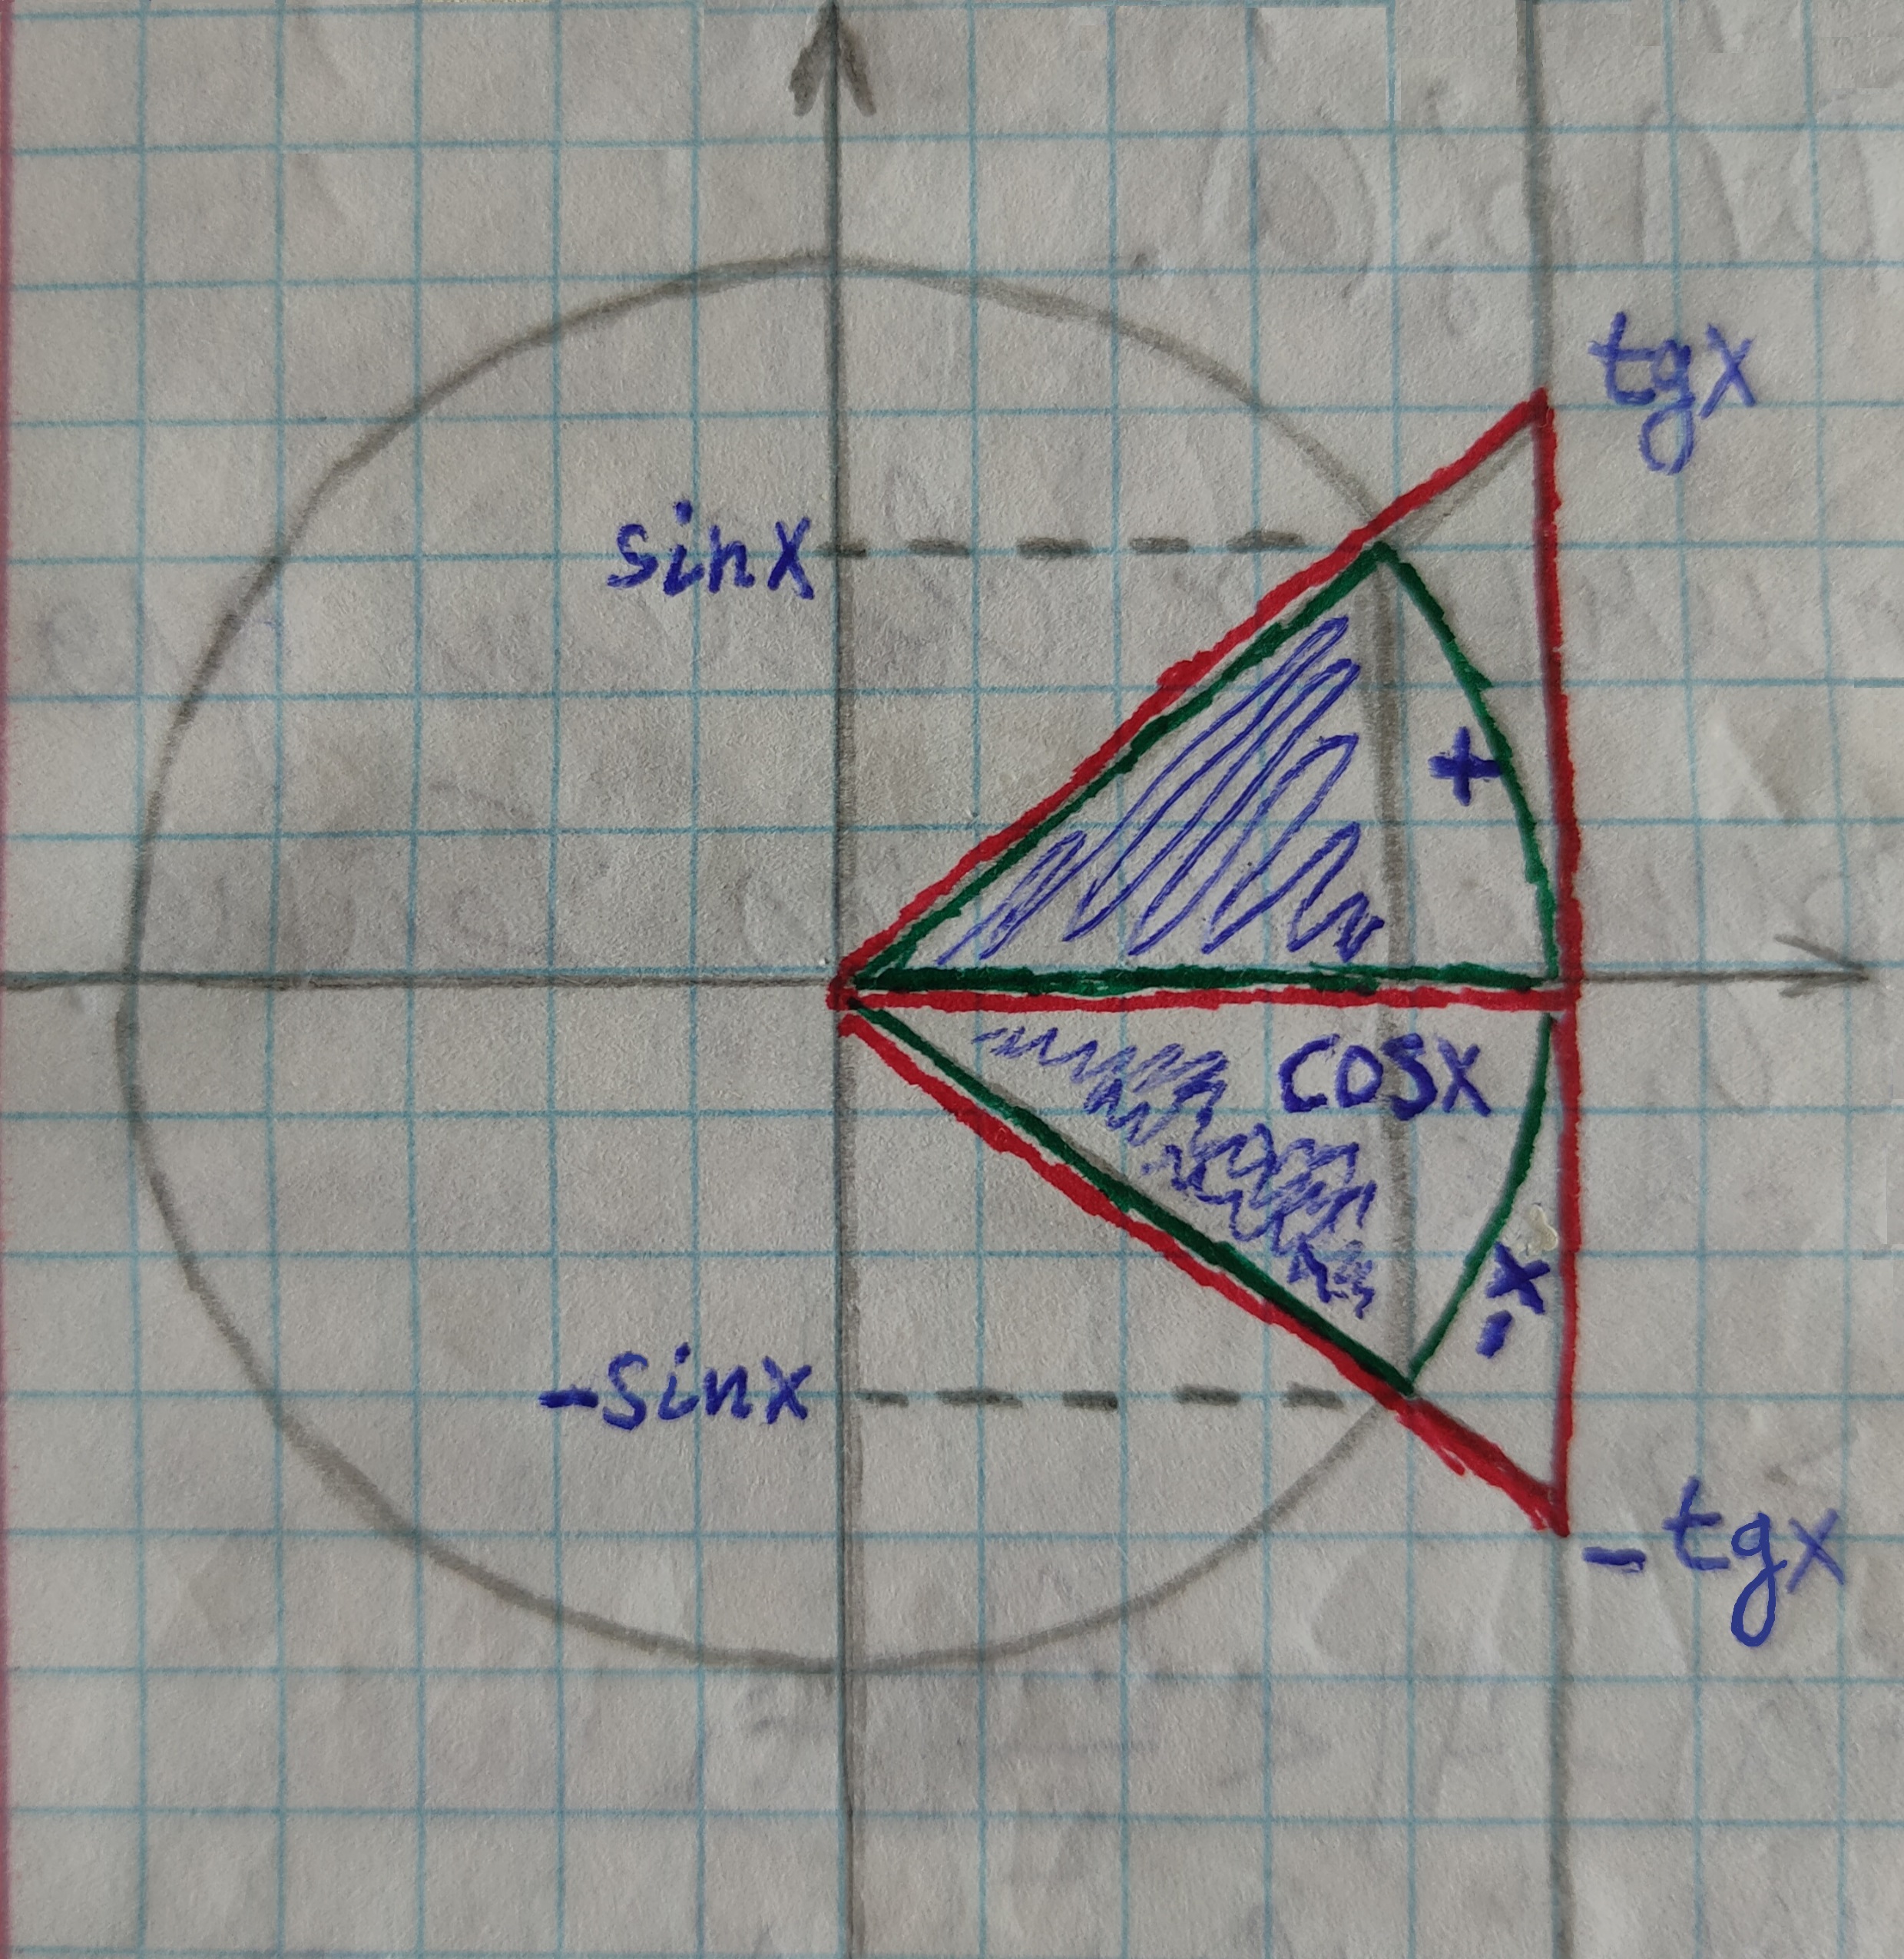 tgx
sinx
+
cosx
-x
-sinx
-tgx